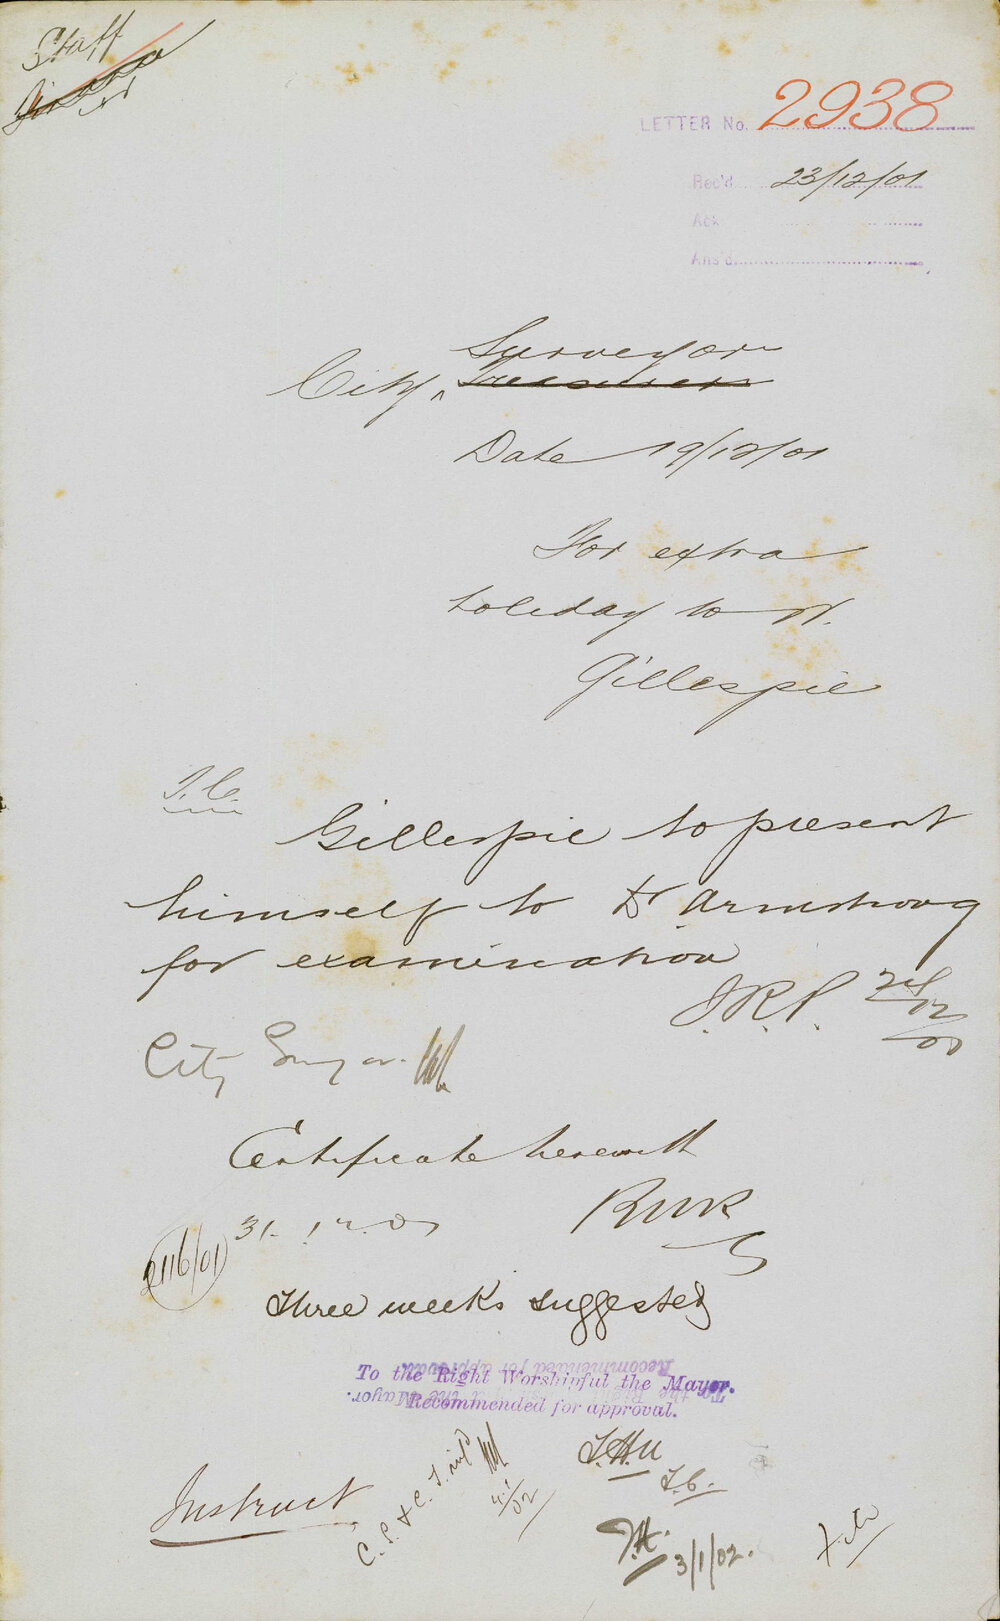 Staff
LETTER No. 2938
Rec'd 23/12/01
Ack
Ans'd
Surveyor
City ^ Treasurer
Date 19/12/01
For extra
holiday to W.
Gillespie
T.C.
Gillespie to present
himself to Dr Armstrong
for examination
City Surveyor
Certificate herewith
31.12.01
RWR
2116/01
Three weeks suggested
To the Right Worshipful the Mayor.
Recommended for approval.
T.C.
Instruct
C.S. & C.T. inf'd
4.1/02
3/1/02.